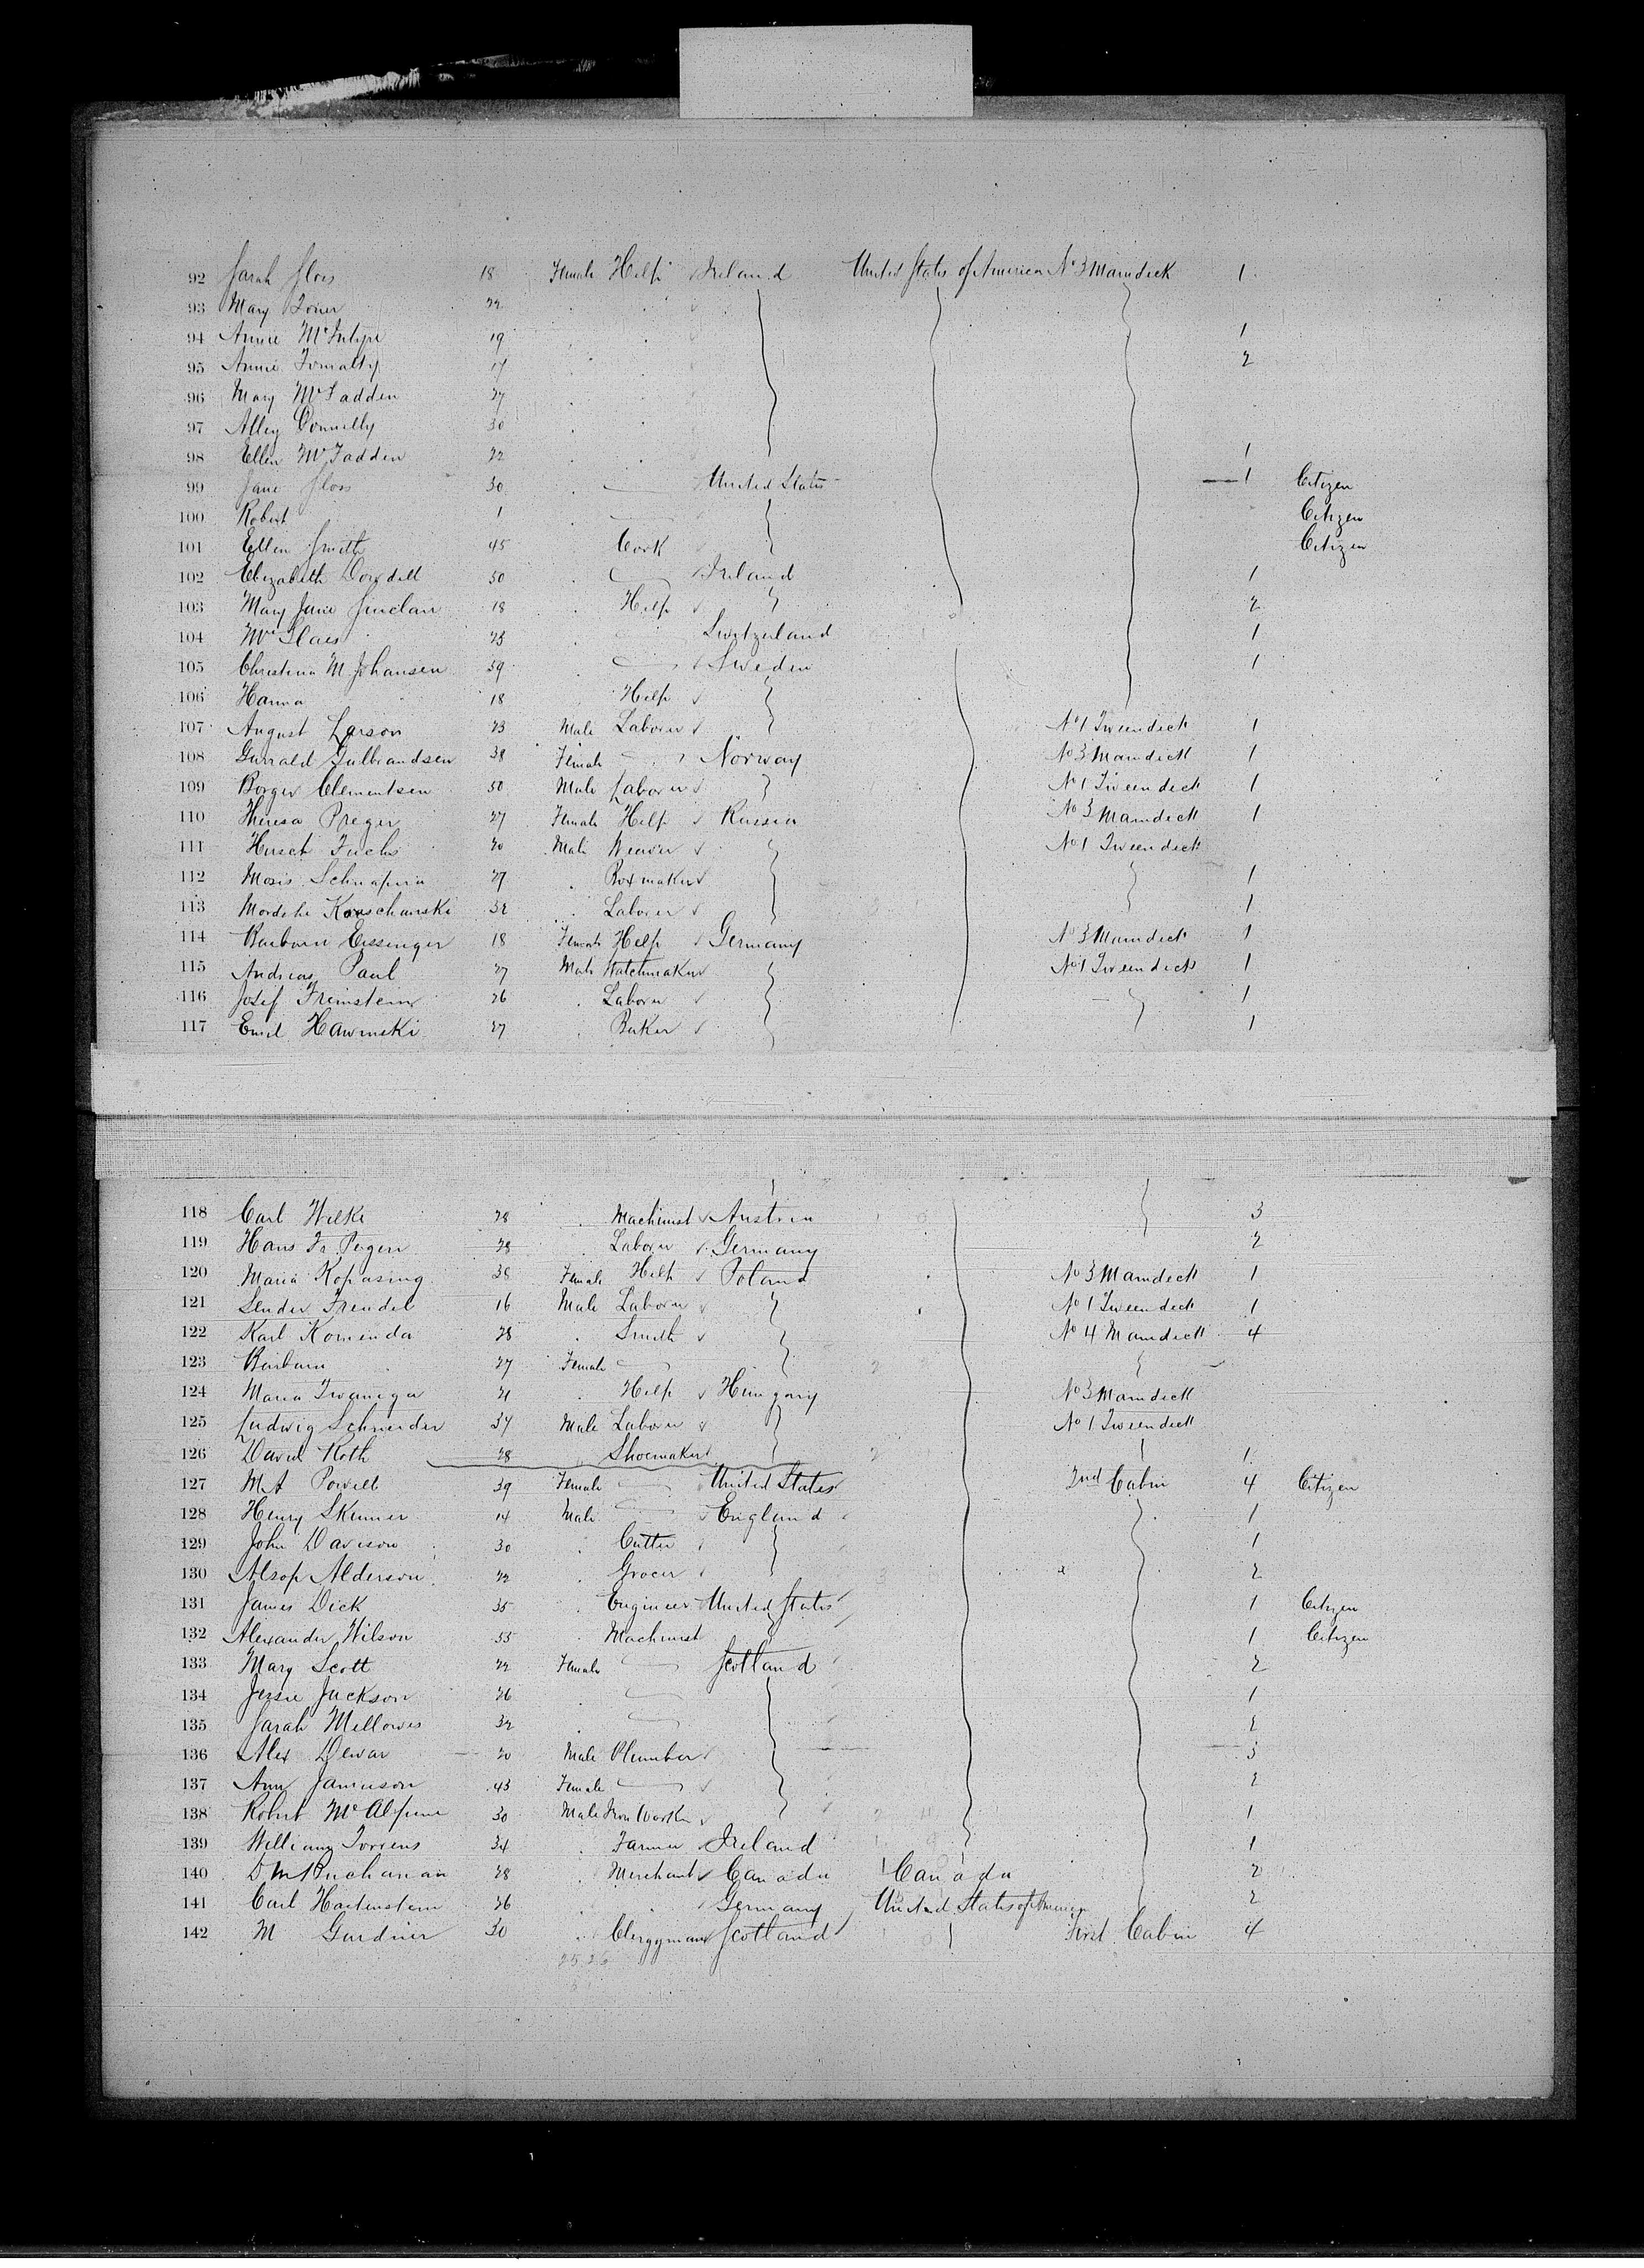 92 Sarah Sloss 18 Female Help Ireland United States of America No 3 Maindeck 1
93 Mary Toner 22
94 Annie McIntyre 19 1
95 Annie 17 2
96 Mary McFadden 27
97 Alley Donnelly 30
98 Ellen McFadden 22 1
99 Jane Sloss 30 United States 1 Citizen
100 Robert 1 Citizen
101 Ellen Smith 45 Cook Citizen
102 Elizabeth Dowdell 50 Ireland 1
103 Mary Jane Sinclair 18 Help 2
104 23 Switzerland 1
105 Christina M Johansen 39 Sweden 1
106 Hanna 18 Help
107 August Larson 23 Male Laborer No 1 Tweendeck 1
108 Gulbrandsen 38 Female Norway No 3 Maindeck 1
109 Borger Clementsen 50 Male Laborer No 1 Tweendeck 1
110 Theresa Preger 27 Female Help Russia No 3 Maindeck 1
111 Hirsch Fuchs 20 Male Weaver No 1 Tweendeck
112 Moses 27 Boxmaker 1
113 32 Laborer 1
114 Barbara Eissinger 18 Female Help Germany No 3 Maindeck 1
115 Andreas Paul 27 Male Watchmaker No 1 Tweendeck 1
116 Josef 26 Laborer 1
117 Emil Hawinski 27 Baker 1
118 Carl Wilke 28 Machinist Austria 3
119 Hans Fr. 28 Laborer Germany 2
120 Maria Kopasing 38 Female Help Poland No 3 Maindeck 1
121 Sender Frendel 16 Male Laborer No 1 Tweendeck 1
122 Karl Komenda 28 Smith No 4 Maindeck 4
123 Barbara 27 Female
124 Maria 21 Help Hungary No 3 Maindeck
125 Ludwig Schneider 37 Male Laborer No 1 Tweendeck
126 David Roth 28 Shoemaker 1
127 M A Powell 39 Female United States 2nd Cabin 4 Citizen
128 Henry Skinner 14 Male England 1
129 John Davison 30 Cutter 1
130 Alsop Alderson 22 Grocer 2
131 James Dick 35 Engineer United States 1 Citizen
132 Alexander Wilson 55 Machinist 1 Citizen
133 Mary Scott 22 Female Scotland 2
134 Jessie Jackson 26 1
135 Sarah Mellowes 32 2
136 Alex Dewar 20 Male Plumber 3
137 Ann Jamieson 43 Female 2
138 Robert McAlpine 30 Male Iron Worker 1
139 William Torrens 34 Farmer Ireland 1
140 D M Buchanan 28 Merchant Canada Canada 2
141 Carl Hartenstein 26 Germany United States of America 2
142 M Gardner 30 Clergyman Scotland First Cabin 4
2526